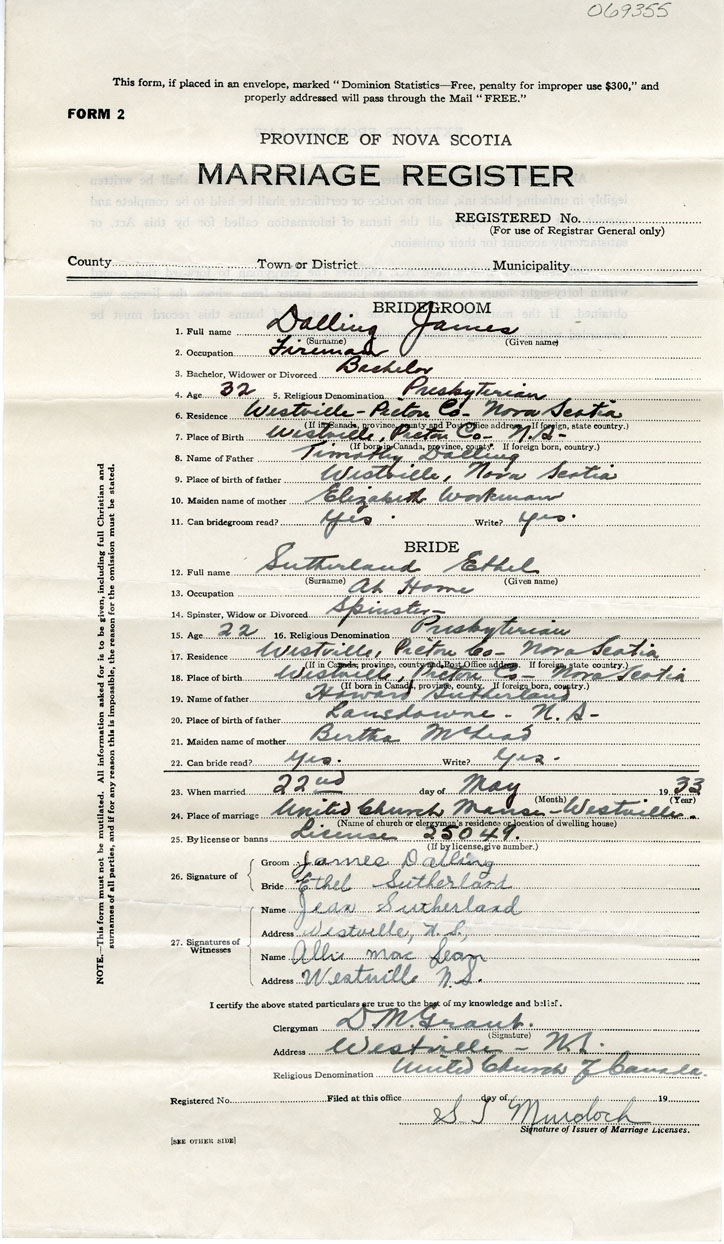 069355
This form, if placed in an envelope, marked "Dominion Statistics—Free, penalty for improper use $300," and
properly addressed will pass through the Mail "FREE."
FORM 2
PROVINCE OF NOVA SCOTIA
MARRIAGE REGISTER
REGISTERED No.
(For use of Registrar General only)
County Town or District Municipality
BRIDEGROOM
1. Full name Dalling James
(Surname) (Given name)
2. Occupation Fireman
3. Bachelor, Widower or Divorced Bachelor
4. Age 32 5. Religious Denomination Presbyterian
6. Residence Westville - Pictou Co - Nova Scotia
(If in Canada, province, county and Post Office address. If foreign, state country.)
7. Place of Birth Westville, Pictou Co - N.S-
(If born in Canada, province, county. If foreign born, country.)
8. Name of Father Timothy Dalling
9. Place of birth of father Westville, Nova Scotia
10. Maiden name of mother Elizabeth Workman
11. Can bridegroom read? Yes. Write? Yes.
BRIDE
12. Full name Sutherland Ethel
(Surname) (Given name)
13. Occupation At Home
14. Spinster, Widow or Divorced Spinster-
15. Age 22 16. Religious Denomination Presbyterian
17. Residence Westville, Pictou Co - Nova Scotia
(If in Canada, province, county and Post Office address. If foreign, state country.)
18. Place of birth Westville, Pictou Co - Nova Scotia
(If born in Canada, province, county. If foreign born, country.)
19. Name of father Howard Sutherland
20. Place of birth of father Lansdowne - N.S-
21. Maiden name of mother Bertha McLeod
22. Can bride read? Yes. Write? Yes.
23. When married 22nd day of May 1933
(Month) (Year)
24. Place of marriage United Church Manse - Westville.
(Name of church or clergyman's residence or location of dwelling house)
25. By license or banns License 25049.
(If by license, give number.)
26. Signature of Groom James Dalling
Bride Ethel Sutherland
27. Signatures of Witnesses Name Jean Sutherland
Address Westville, N.S.
Name Allie Mac
Address Westville N.S.
I certify the above stated particulars are true to the best of my knowledge and belief.
Clergyman D. M. Grant.
(Signature)
Address Westville - N.S.
Religious Denomination United Church of Canada.
Registered No. Filed at this office day of 19
Murdoch
Signature of Issuer of Marriage Licenses.
[SEE OTHER SIDE]
NOTE.—This form must not be mutilated. All information asked for is to be given, including full Christian and
surnames of all parties, and if for any reason this is impossible, the reason for the omission must be stated.